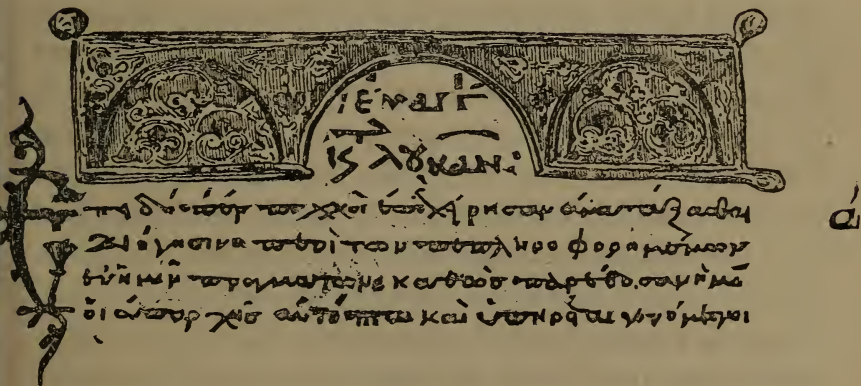 εὐαγγ
κτ λουκᾶν:
Ἐπειδήπερ πολλοὶ ἐπεχείρησαν ἀνατάξασθαι
διήγησιν περὶ τῶν πεπληροφορημένων
ἐν ἡμῖν πραγμάτων· καθὼς παρέδοσαν ἡμῖν
οἱ ἀπαρχῆς αὐτόπται καὶ ὑπηρέται γενόμενοι
ά